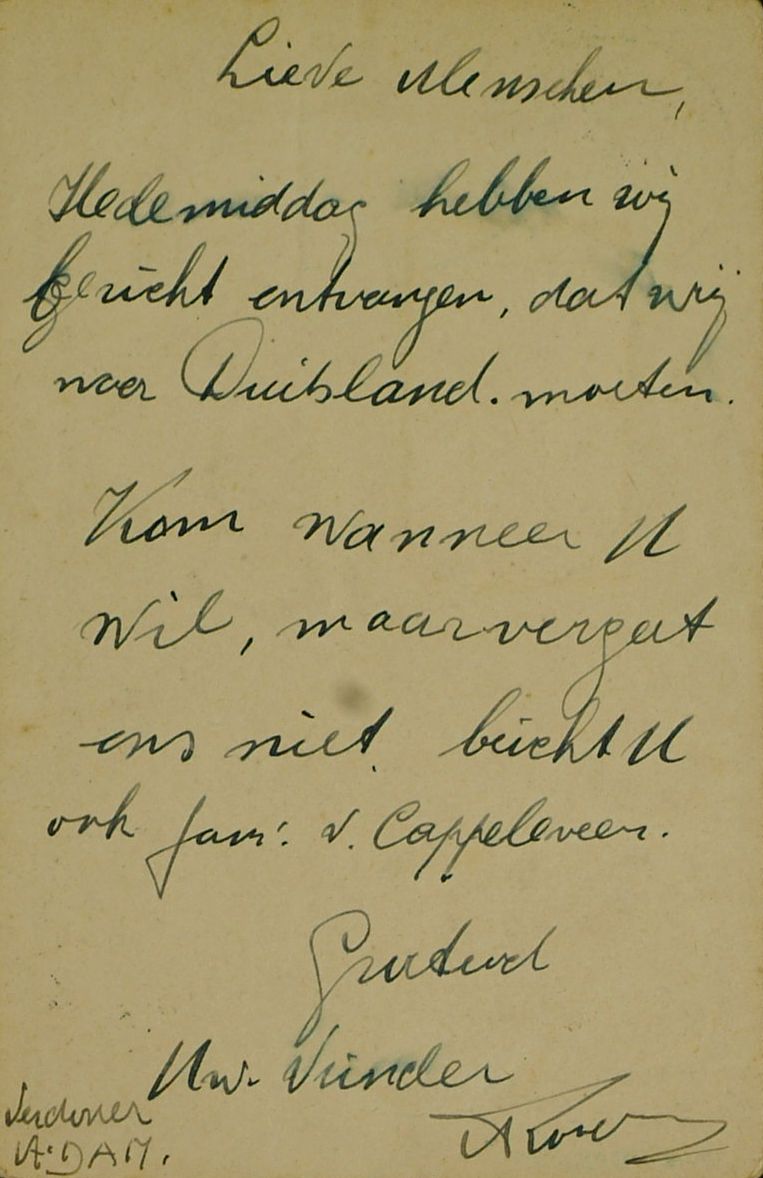 Lieve Menschen,
Hedemiddag hebben wij
bericht ontvangen, dat wij
naar Duitsland. moeten.
Kom wanneer U
wil, maar vergeet
ons niet. bericht U
ook fam: v. Cappeleveen.
Groetend
Uw. Vriendin
Verdoner
A.DAM.